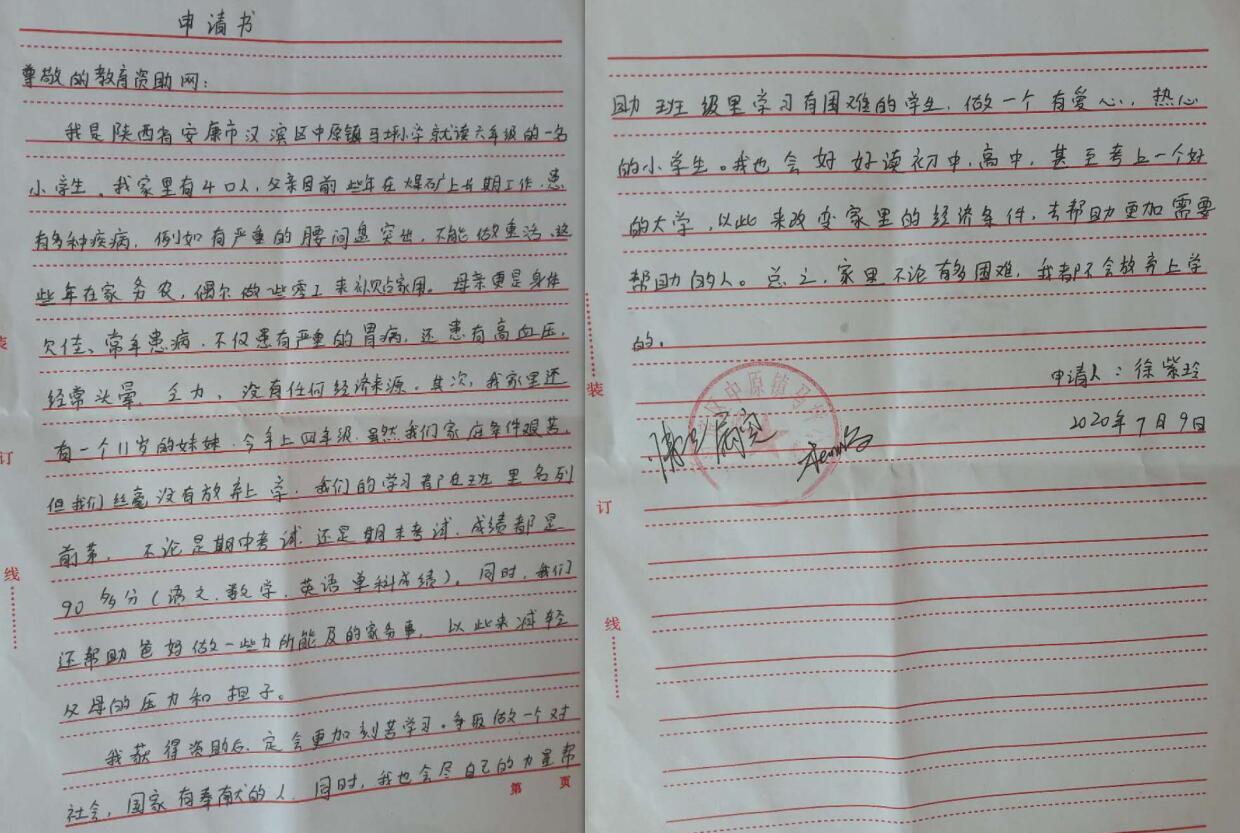 申请书
尊敬的教育资助网：
我是陕西省安康市汉滨区中原镇马坪小学就读六年级的一名
小学生。我家里有4口人，父亲目前些年在煤矿上长期工作，患
有多种疾病，例如有严重的腰间盘突出，不能做重活，这
些年在家务农，偶尔做些零工来补贴家用。母亲更是身体
欠佳、常年患病，不仅患有严重的胃病，还患有高血压，
经常头晕、乏力，没有任何经济来源。其次，我家里还
有一个11岁的妹妹，今年上四年级，虽然我们家庭条件艰苦，
但我们丝毫没有放弃上学，我们的学习都在班里名列
前茅，不论是期中考试，还是期末考试，成绩都是
90多分（语文、数学、英语单科成绩）。同时，我们
还帮助爸妈做一些力所能及的家务事，以此来减轻
父母的压力和担子。
我获得资助后，定会更加刻苦学习。争取做一个对
社会，国家有奉献的人，同时，我也会尽自己的力量帮
助班级里学习有困难的学生，做一个有爱心，热心
的小学生。我也会好好读初中，高中，甚至考上一个好
的大学，以此来改变家里的经济条件，去帮助更加需要
帮助的人。总之，家里不论有多困难，我都不会放弃上学
的。
申请人：徐紫玲
2020年7月9日
中原镇马
装
订
线
第 页
装
订
线